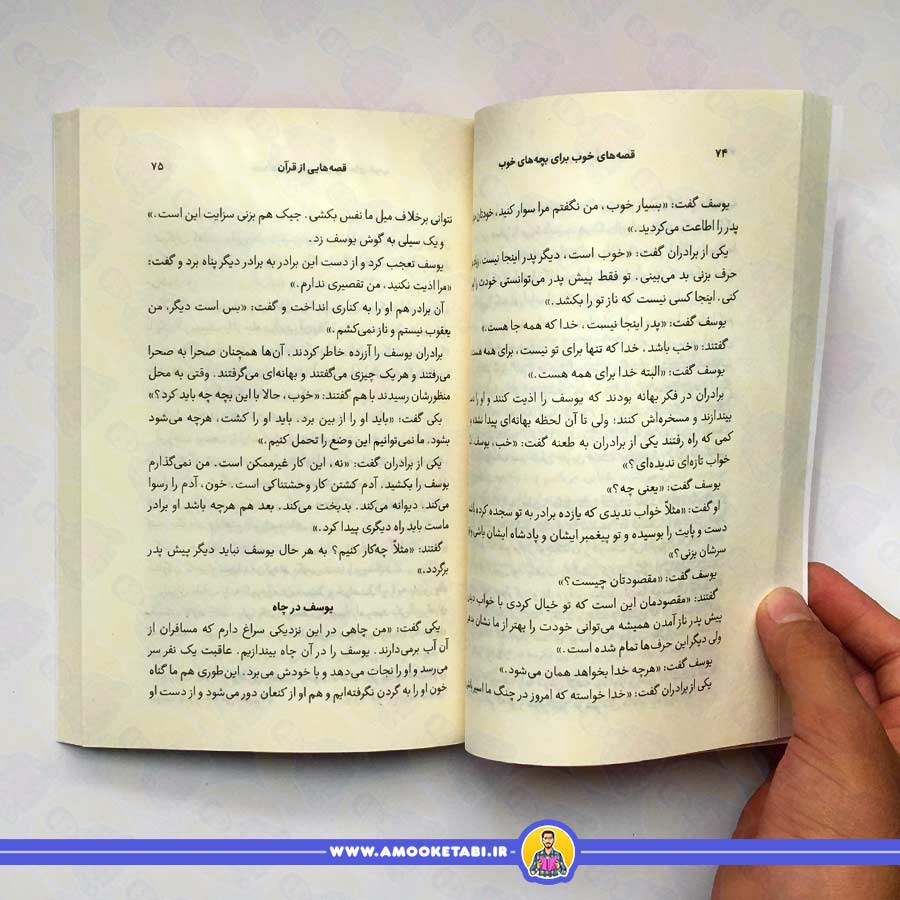 ۷۴
قصه‌های خوب برای بچه‌های خوب
یوسف گفت: «بسیار خوب، من نگفتم مرا سوار کنید، خودتان
پدر را اطاعت می‌کردید.»
یکی از برادران گفت: «خوب است، دیگر پدر اینجا نیست
حرف بزنی بد می‌بینی. تو فقط پیش پدر می‌توانستی خودت را
کنی. اینجا کسی نیست که ناز تو را بکشد.»
یوسف گفت: «پدر اینجا نیست، خدا که همه جا هست.»
گفتند: «خب باشد، خدا که تنها برای تو نیست، برای همه هست
یوسف گفت: «البته خدا برای همه هست.»
برادران در فکر بهانه بودند که یوسف را اذیت کنند و او را
بیندازند و مسخره‌اش کنند؛ ولی تا آن لحظه بهانه‌ای پیدا
کمی که راه رفتند یکی از برادران به طعنه گفت: «خب، یوسف
خواب تازه‌ای ندیده‌ای؟»
یوسف گفت: «یعنی چه؟»
او گفت: «مثلاً خواب ندیدی که یازده برادر به تو سجده کرده
دست و پایت را بوسیده و تو پیغمبر ایشان و پادشاه ایشان باشی
سرشان بزنی؟»
یوسف گفت: «مقصودتان چیست؟»
گفتند: «مقصودمان این است که تو خیال کردی با خواب
پیش پدر ناز آمدن همیشه می‌توانی خودت را بهتر از ما نشان
ولی دیگر این حرف‌ها تمام شده است.»
یوسف گفت: «هرچه خدا بخواهد همان می‌شود.»
یکی از برادران گفت: «خدا خواسته که امروز در چنگ ما اسیر
قصه‌هایی از قرآن
۷۵
نتوانی برخلاف میل ما نفس بکشی. جیک هم بزنی سزایت این است.»
و یک سیلی به گوش یوسف زد.
یوسف تعجب کرد و از دست این برادر به برادر دیگر پناه برد و گفت:
«مرا اذیت نکنید، من تقصیری ندارم.»
آن برادر هم او را به کناری انداخت و گفت: «بس است دیگر، من
یعقوب نیستم و ناز نمی‌کشم.»
برادران یوسف را آزرده خاطر کردند. آن‌ها همچنان صحرا به صحرا
می‌رفتند و هر یک چیزی می‌گفتند و بهانه‌ای می‌گرفتند. وقتی به محل
منظورشان رسیدند با هم گفتند: «خوب، حالا با این بچه چه باید کرد؟»
یکی گفت: «باید او را از بین برد. باید او را کشت، هرچه می‌شود
بشود. ما نمی‌توانیم این وضع را تحمل کنیم.»
یکی از برادران گفت: «نه، این کار غیرممکن است. من نمی‌گذارم
یوسف را بکشید. آدم کشتن کار وحشتناکی است. خون، آدم را رسوا
می‌کند. دیوانه می‌کند. بدبخت می‌کند. بعد هم هرچه باشد او برادر
ماست باید راه دیگری پیدا کرد.»
گفتند: «مثلاً چه‌کار کنیم؟ به هر حال یوسف نباید دیگر پیش پدر
برگردد.»
یوسف در چاه
یکی گفت: «من چاهی در این نزدیکی سراغ دارم که مسافران از
آن آب برمی‌دارند. یوسف را در آن چاه بیندازیم. عاقبت یک نفر سر
می‌رسد و او را نجات می‌دهد و با خودش می‌برد. این‌طوری هم ما گناه
خون او را به گردن نگرفته‌ایم و هم او از کنعان دور می‌شود و از دست او
WWW.AMOOKETABI.IR